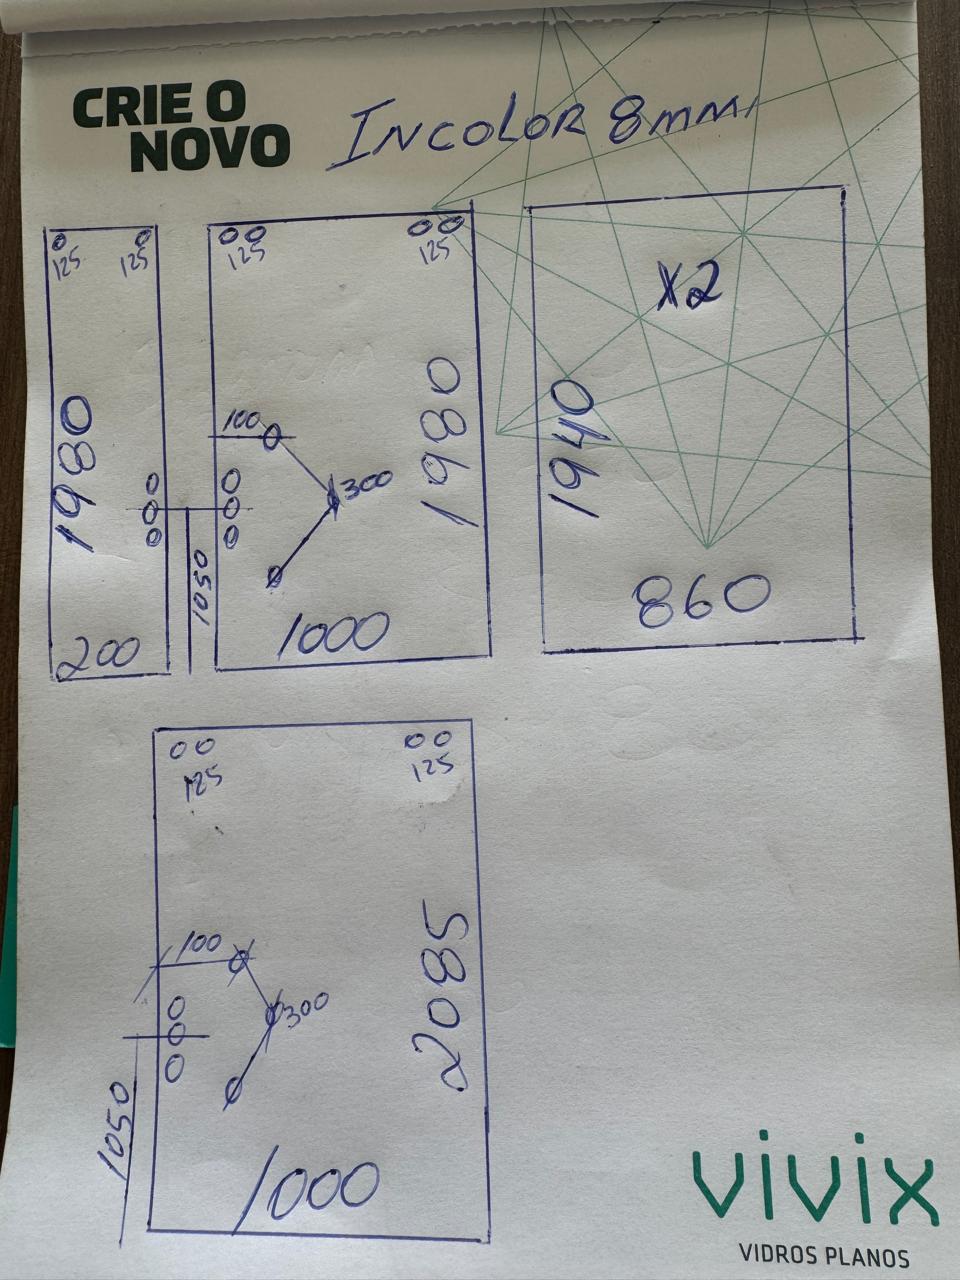 CRIE O
NOVO
INCOLOR 8mm
125
125
1980
200
1050
125
125
100
300
1980
1000
X2
1940
860
125
125
100
300
2085
1050
1000
vivix
VIDROS PLANOS